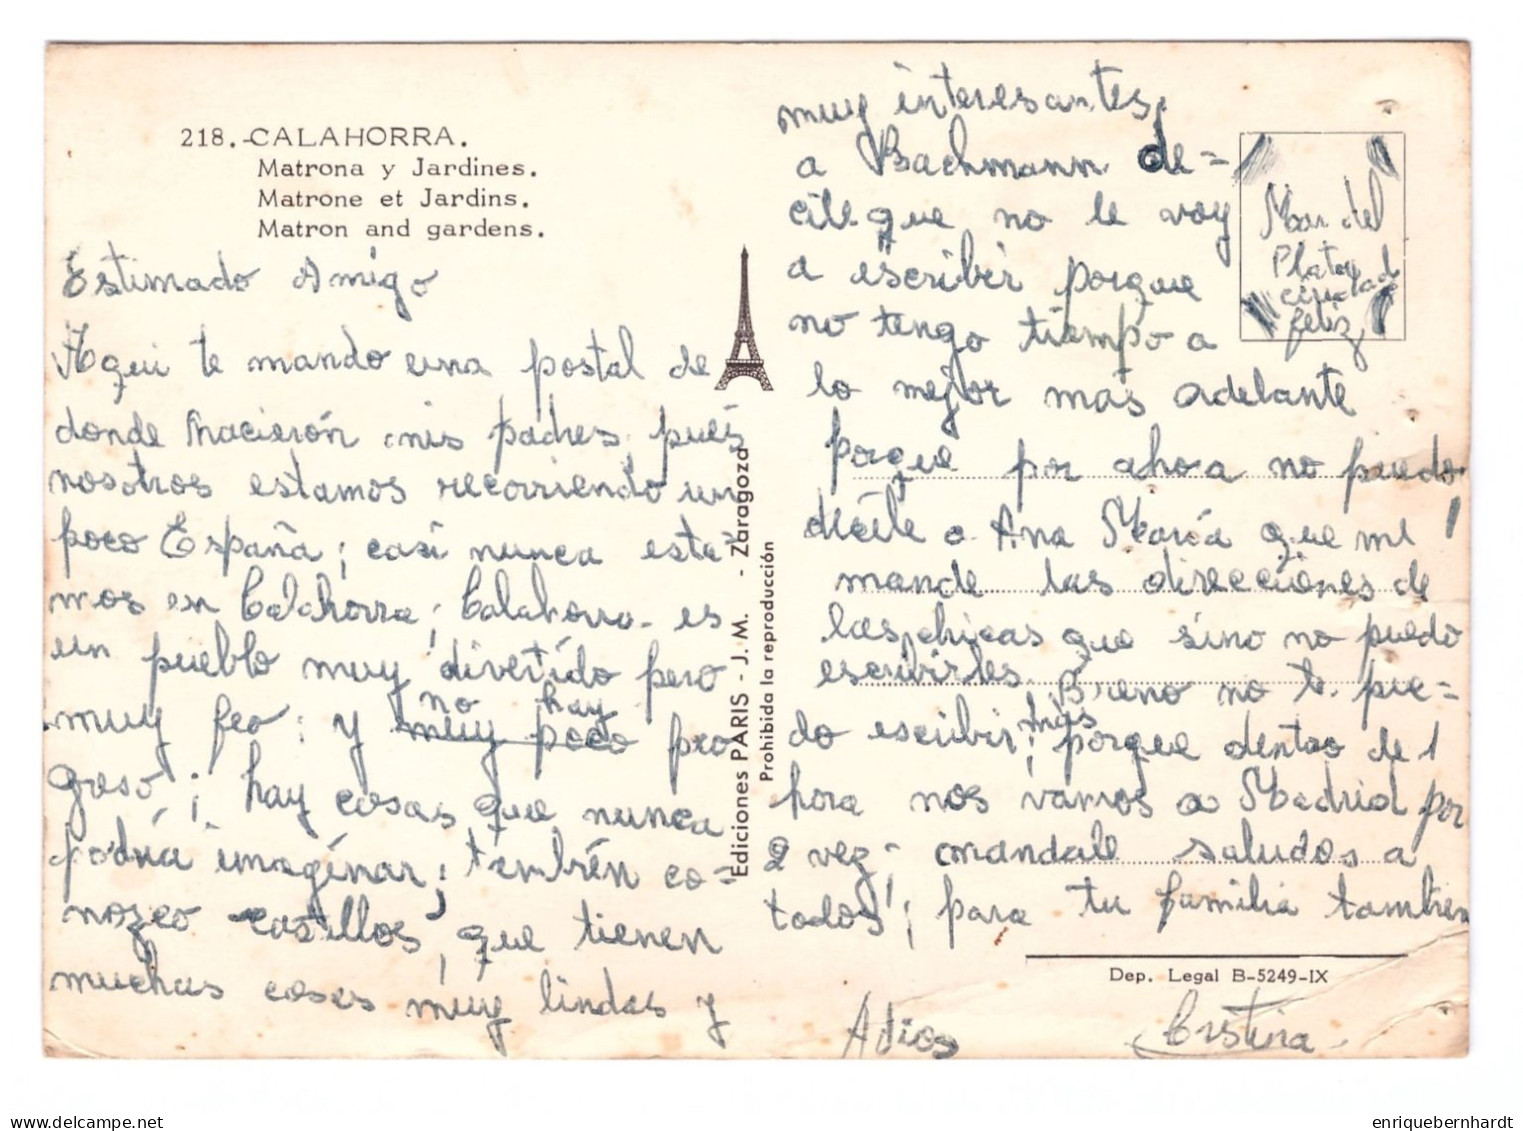 218.-CALAHORRA.
Matrona y Jardines.
Matrone et Jardins.
Matron and gardens.
Estimado Amigo
Aqui te mando una postal de
donde nacierón mis padres, pués
nosotros estamos recorriendo un
poco España; casi nunca esta-
mos en Calahorra; Calahorra es
un pueblo muy divertido pero
muy feo; y muy poco no hay pro
greso; hay cosas que nunca
podría imaginar; también co=
nozco castillos, que tienen
muchas cosas muy lindas y
muy interesantes,
a Bachmann de=
cile que no le voy
a escribir porque
no tengo tiempo a
lo mejor mas adelante
porque por ahora no puedo
decile a Ana María que me
mande las direcciones de
las chicas que sino no puedo
escribirles. Bueno no te pue=
do escribir más porque dentro de 1
hora nos vamos a Madrid por
2 vez; mandale saludos a
todos; para tu familia tambien
Adios
Cristina
Mar del
Plata
ciudad
feliz
Ediciones PARIS - J. M. - Zaragoza
Prohibida la reproducción
Dep. Legal B-5249-IX
enriquebernhardt